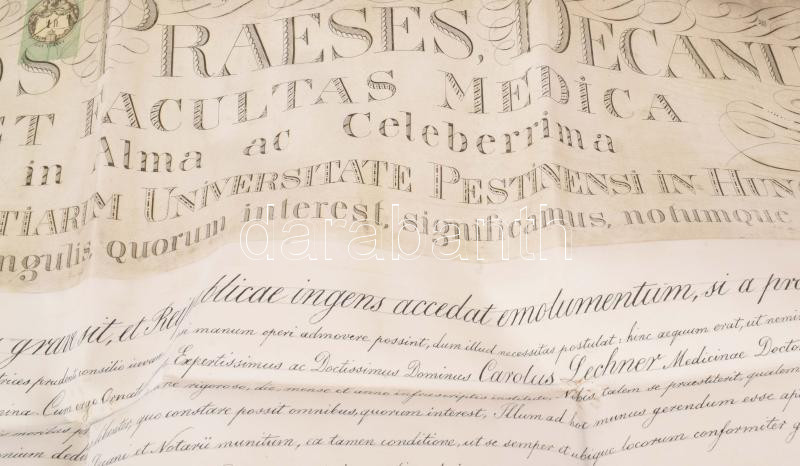 10
OS PRAESES, DECANU
ET FACULTAS MEDICA
in Alma ac Celeberrima
TIARUM UNIVERSITATE PESTINENSI IN HUN
ngulis, quorum interest, significamus, notumque
darabanth
blicae ingens accedat emolumentum, si a pro
sit, et
manum operi admovere possint, dum illud necessitas postulat: hinc aequum erat, ut nemin
consilio
Expertissimus ac Doctissimus Dominus Carolus Lechner Medicinae Doctor
Cum ergo rigoroso, die, mense et anno infrascriptis instituto, Nobis talem se praestiterit, qualem
quo constare possit omnibus, quorum interest, Illum ad hoc munus gerendum esse ap
et Notarii munitum, ea tamen conditione, ut se semper et ubique locorum conformiter